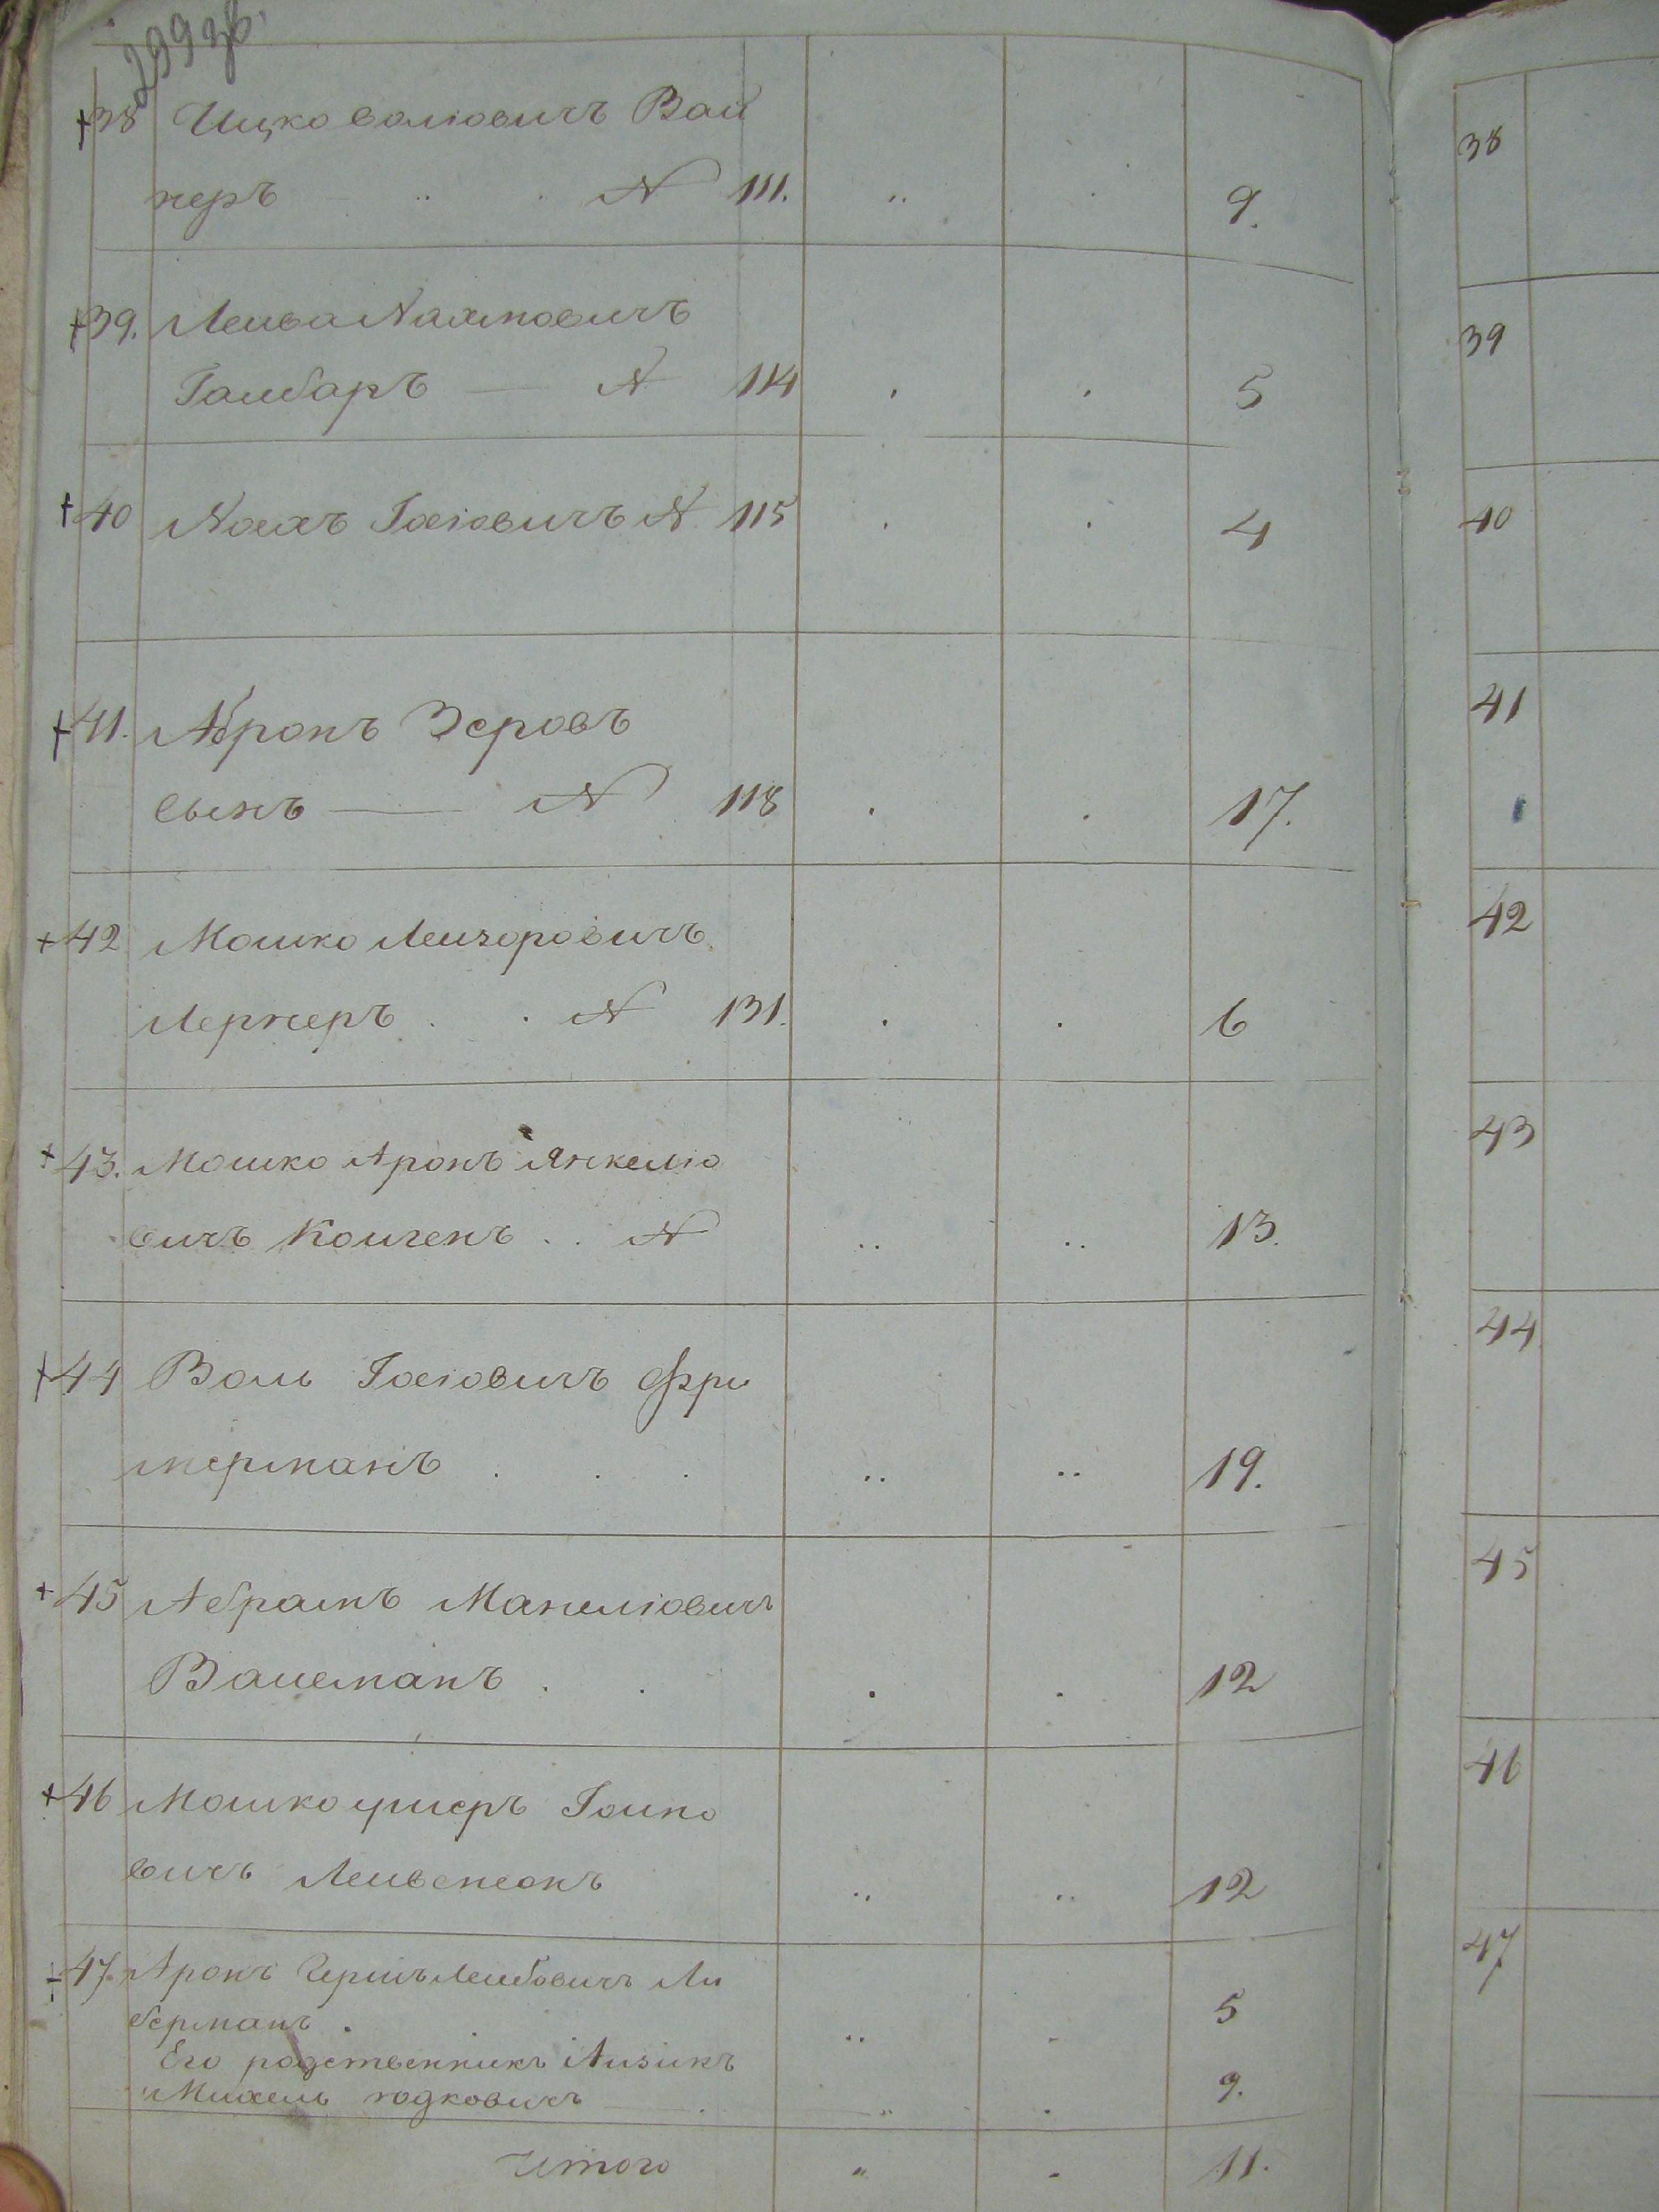 299 зв.
38 Ицко Волiовичъ Вай
неръ № 111. 9.
39. Лейба Нахмовичъ
Гамбаръ — № 114 5
40 Нахъ Iосiовичъ № 115 4
41. Абронъ Зеровъ
сынъ — № 118 17.
42 Мошко Лейзоровичъ
Лернеръ № 131. 6
43. Мошко Аронъ Янкелiо
вичъ Коигенъ № 13.
44 Воль Iосiовичъ Фри
мерманъ 19.
45 Абрамъ Манелiовичъ
Вайсманъ 12
46 Мошко ушеръ Iоино
вичъ Лейвенсонъ 12
47. Аронъ Гершъ Лейбовичъ Ли
берманъ. 5
Его родственникъ Айзикъ
Михель Юдковичъ 9.
Итого 11.
38
39
40
41
42
43
44
45
46
47